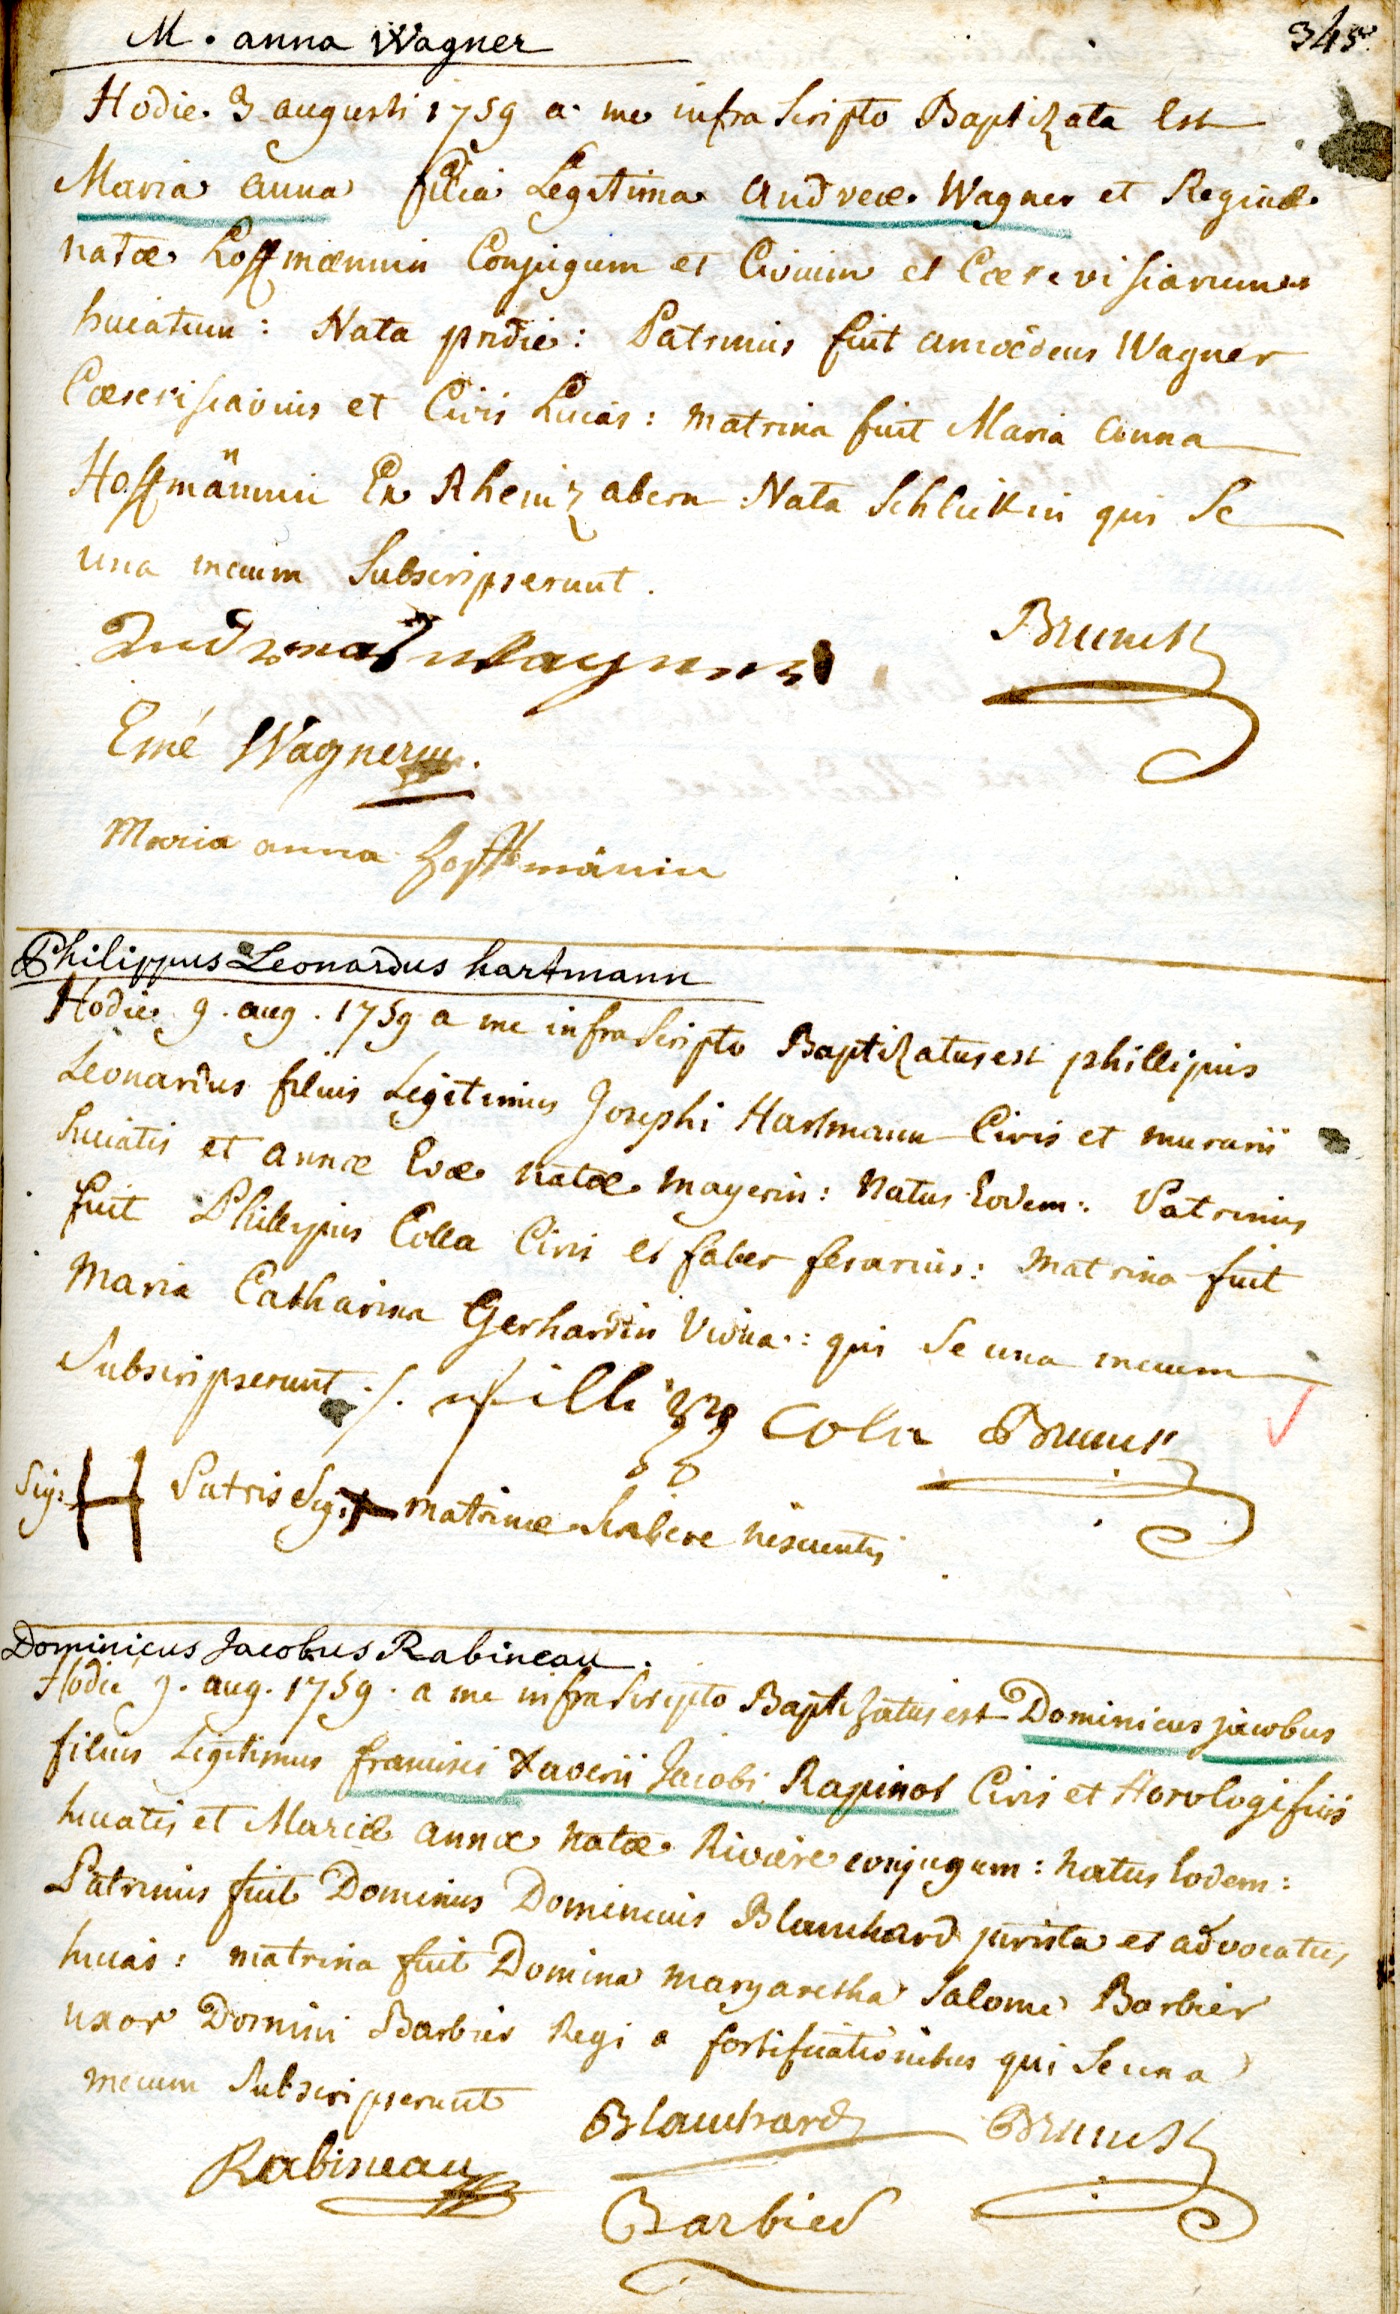 M. anna Wagner
345
Hodie 3 augusti 1759 a me infra Scripto Baptizata Est
Maria anna filia Legitima andreæ Wagner et Reginæ
natæ Hoffmännin Conjugum et Civium et Cærevisiariorum
huiatum: Nata pridie: Patrinus fuit amoedeus Wagner
Cærevisiarius et Civis Huias: matrina fuit Maria anna
Hoffmännin Ex Rheinzabern Nata Schlickin qui Se
una mecum Subscripserunt.
Brunck
Emé Wagner
Maria anna hoffmänin
Philippus Leonardus hartmann
Hodie 9. aug. 1759 a me infra Scripto Baptizatus est phillipus
Leonardus filius Legitimus Josephi Hartmann Civis et murarii
huiatis et annæ Evæ natæ mayerin: natus Eodem: Patrinus
fuit Phillipus Colla Civis et faber ferarius: matrina fuit
Maria Catharina Gerhardin Vidua: qui Se una mecum
Subscripserunt ./. Cola Brunck
Sig: H Patris Sig: + matrinæ Scribere nescientis
Dominicus Jacobus Rabineau.
Hodie 9. aug. 1759. a me infra Scripto Baptizatus est Dominicus jacobus
filius Legitimus francisci Xaverii Jacobi Rapinot Civis et Horologificis
huiatis et Mariæ annæ natæ Riviere conjugum: natus Eodem:
Patrinus fuit Dominus Dominicus Blanchard jurista et advocatus
huias: matrina fuit Domina margaretha Salome Barbier
uxor Domini Barbier Regi a fortificationibus qui Se una
mecum Subscripserunt
Blanchard Brunck
Rabineau
Barbier